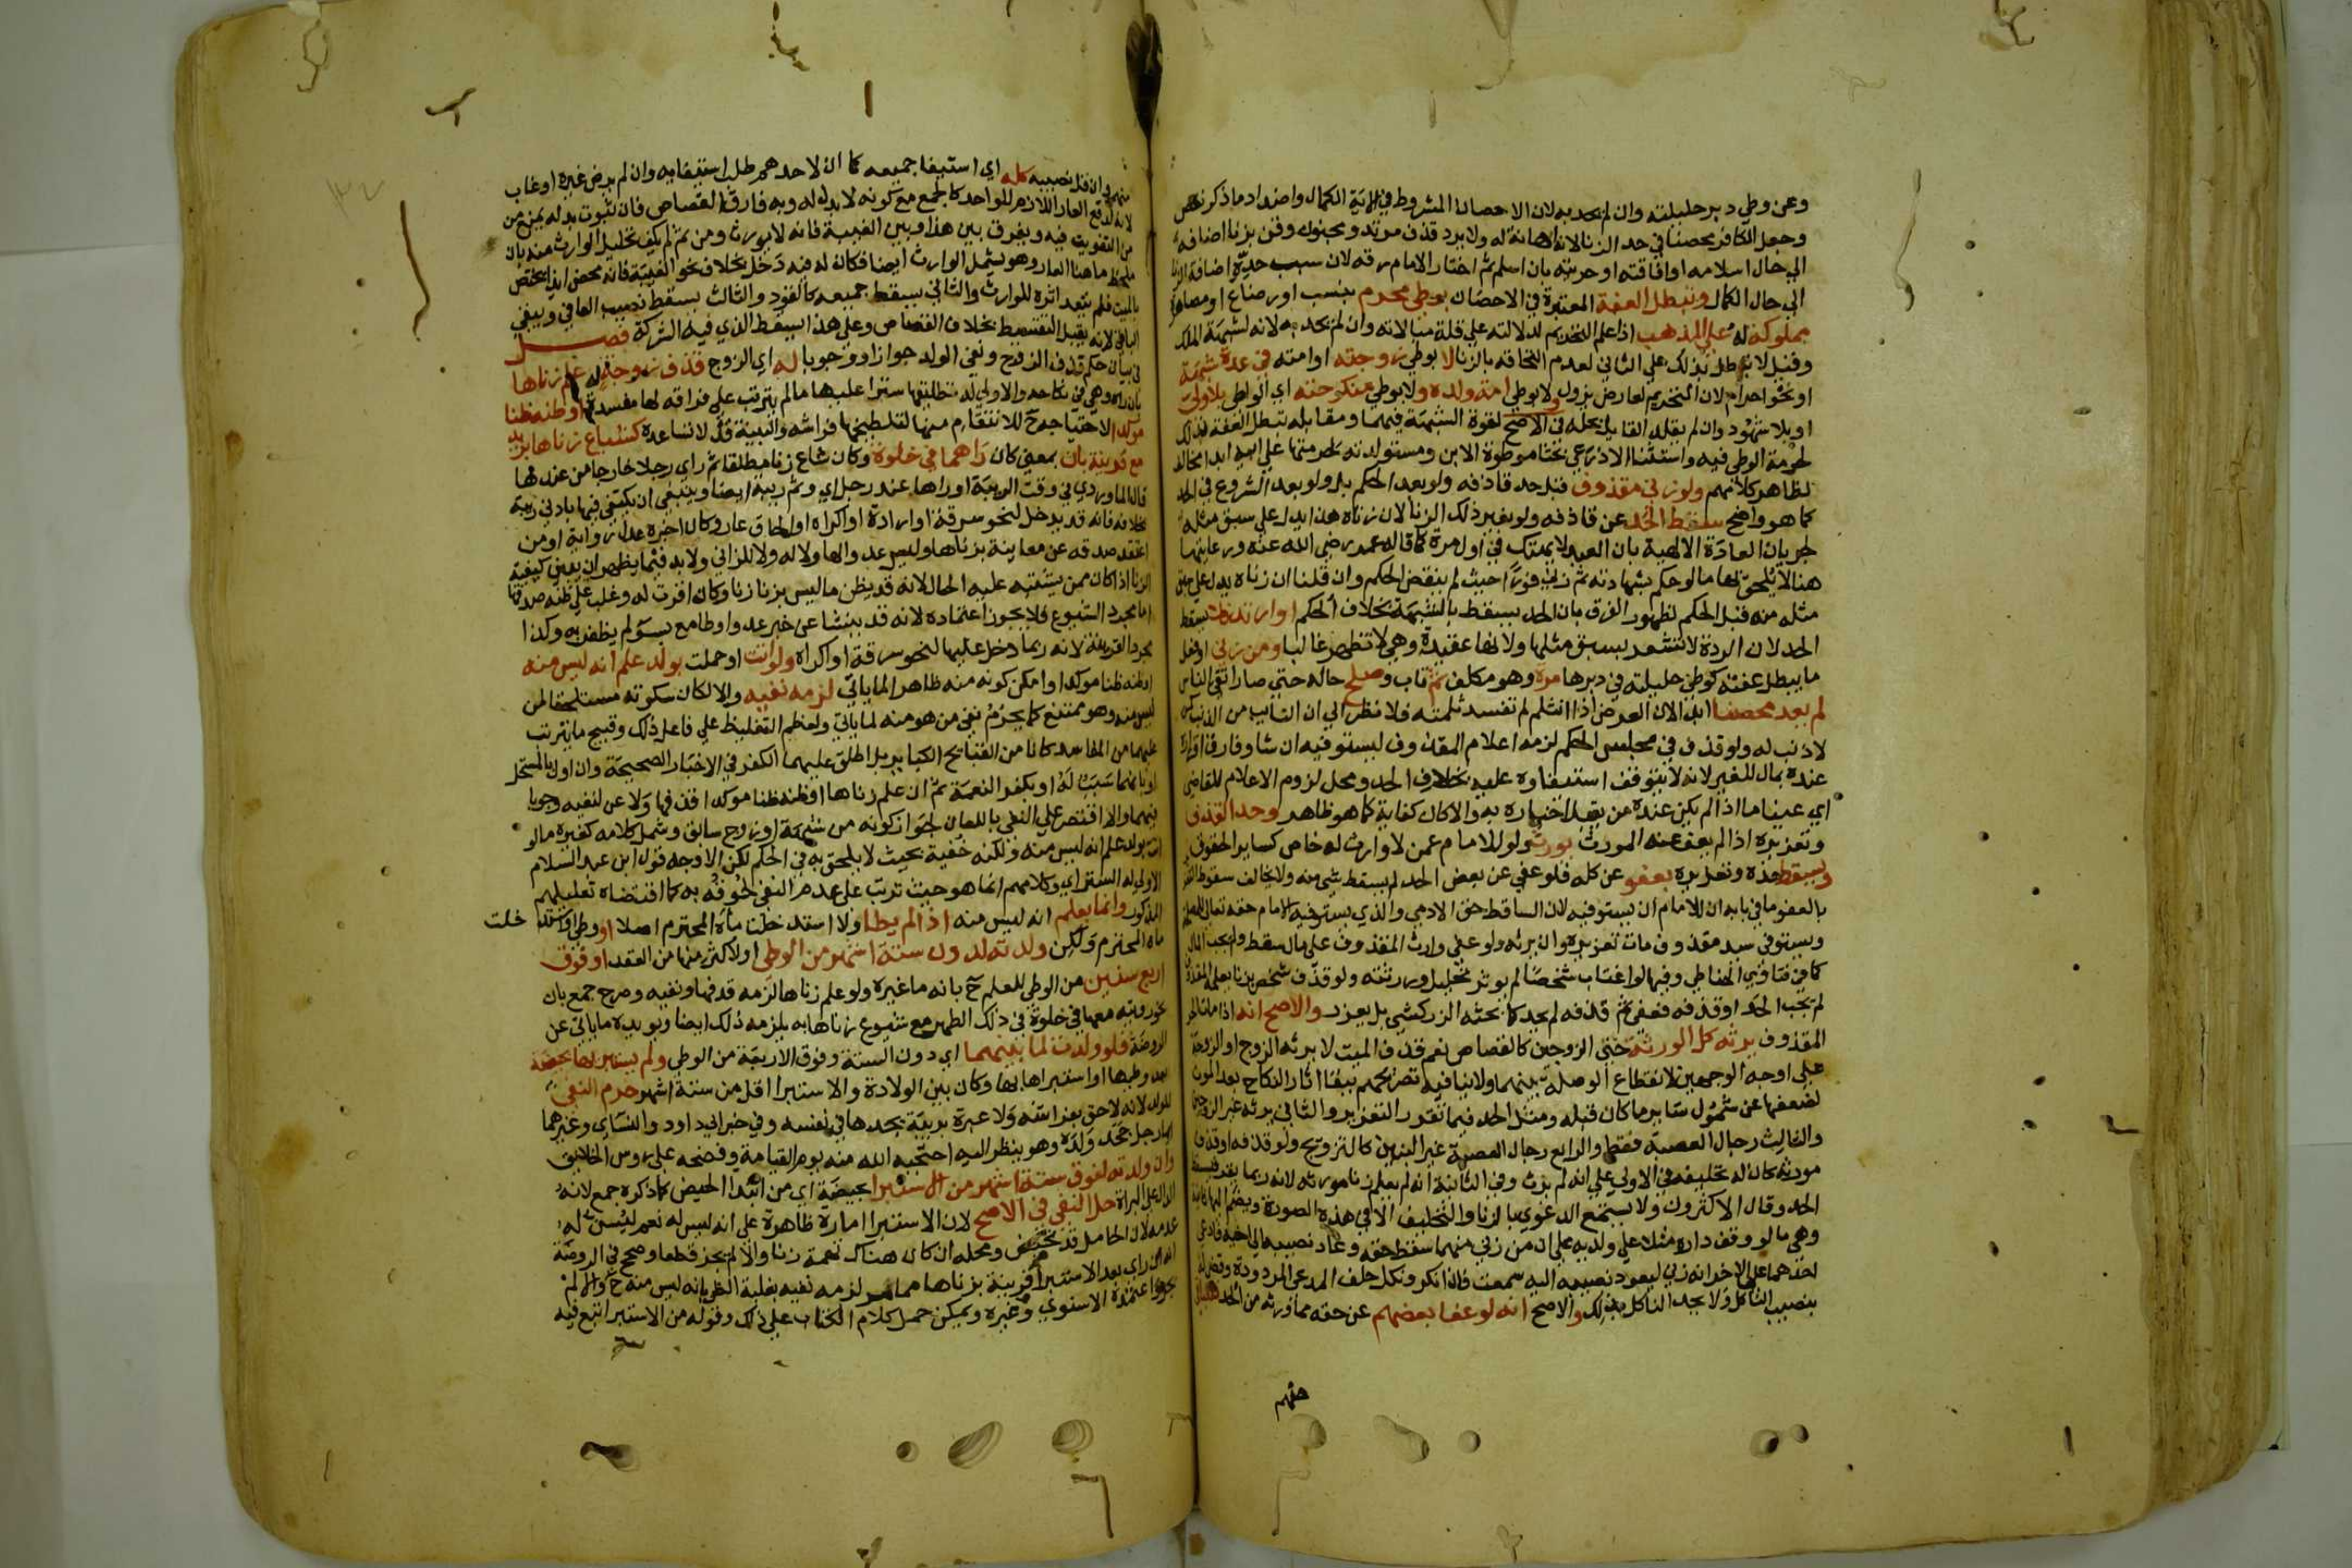 وعن وطي دبر حليلته وان لم يحد به لان الاحصان المشروط فيه الكمال واضداد ما ذكر نقص
وجعل الكافر محصنا في حد الزنا لانه اهانة له ولا يرد قذف مرتد ومجنون وقن بزنا اضافه
الي حال اسلامه او افاقته او حريته بان اسلم ثم اختار الامام رقه لان سبب حده اضافة الزنا
الي حال الكمال وتبطل العفة المعتبرة في الاحصان بوطي محرم بنسب او رضاع او مصاهرة
مملوكة له علي المذهب اذا علم التحريم لدلالته علي قلة مبالاته وان لم يحد به لانه لشبهة الملك
وقيل لا تبطل بذلك علي الثاني لعدم التحاقه بالزنا لا بوطي زوجته او امته في عدة شبهة
او نحو احرام لان التحريم لعارض يزول ولا بوطي امة ولده ولا بوطي منكوحته اي الواطي بلا ولي
او بلا شهود وان لم يقلد القايل بحله في الاصح لقوة الشبهة فيهما ومقابله تبطل العفة بذلك
لحرمة الوطي فيه واستثنا الاذرعي بحثا موطوة الابن ومستولدته لحرمتها علي ابيه ابدا مخالف
لظاهر كلامهم ولو زني مقذوف قبل حد قاذفه ولو بعد الحكم بل ولو بعد الشروع في الحد
كما هو واضح سقط الحد عن قاذفه ولو بغير ذلك الزنا لان زناه هذا يدل علي سبق مثله
لجريان العادة الالهية بان العبد لا يهتك في اول مرة كما قاله عمر رضي الله عنه ورعايتها
هنا لا يلحق بها ما لو حكم بشهادته ثم زني فورا حيث لم ينقض الحكم وان قلنا ان زناه يدل علي سبق
مثله منه قبل الحكم لظهور الفرق بان الحد يسقط بالشبهة بخلاف الحكم او ارتد فلا يسقط
الحد لان الردة لا تشعر بسبق مثلها ولانها عقيدة وهي لا تظهر غالبا ومن زني او فعل
ما يبطل عفته كوطي حليلته في دبرها مرة وهو مكلف ثم تاب وصلح حاله حتي صار اتقي الناس
لم يعد محصنا ابدا لان العرض اذا انثلم لم تنسد ثلمته فلا نظر الي ان التايب من الذنب كمن
لا ذنب له ولو قذف في مجلس الحكم لزمه اعلام المقذوف ليستوفيه ان شا وفارق اقراره
عنده بمال للغير لانه لا يتوقف استيفاوه عليه بخلاف الحد ومحل لزوم الاعلام للقاضي
اي عينا ما اذا لم يكن عنده من يقبل اخباره به والا كان كفاية كما هو ظاهر وحد القذف
وتعزيره اذا لم يعف عنه المورث يورث ولو للامام عمن لا وارث له خاص كساير الحقوق
ويسقط حده وتعزيره بعفو عن كله فلو عفي عن بعض الحد لم يسقط شي منه ولا يخالف سقوط التعزير
بالعفو ما في بابه ان للامام ان يستوفيه لان الساقط حق الادمي والذي يستوفيه الامام حقه تعالي للمصلحة
ويستوفي سيد مقذوف مات تعزيره وان لم يرثه ولو عفي وارث المقذوف علي مال سقط ولم يجب المال
كما في فتاوي الحناطي وفيها لو اغتاب شخصا لم يوثر تحليل ورثته ولو قذف شخص بزنا يعلمه المقذوف
لم يجب الحد او قذفه فعفي ثم قذفه لم يحد كما بحثه الزركشي بل يعزر والاصح انه اذا مات الحر
المقذوف يرثه كل الورثة حتي الزوجين كالقصاص نعم قذف الميت لا يرثه الزوج او الزوجة
علي اوجه الوجهين لانقطاع الوصلة بينهما ولا ينافيه تصريحهم ببقا اثار النكاح بعد الموت
لضعفها عن شمول ساير ما كان قبله ومثل الحد فيما تقرر التعزير والثاني يرثه غير الزوجين
والثالث رجال العصبة فقط والرابع رجال العصبة غير البنين كالتزويج ولو قذفه او قذف
مورثه كان له تحليفه في الاولي علي انه لم يزن وفي الثانية انه لم يعلم زنا مورثه لانه ربما يقر فيسقط
الحد وقال الاكثرون ولا تسمع الدعوي بالزنا والتحليف الا في هذه الصورة ويضم اليها ثانية
وهي ما لو وقف داره مثلا علي ولديه علي ان من زني منهما سقط حقه وعاد نصيبه الي اخيه فادعي
احدهما علي الاخر انه زني ليعود نصيبه اليه سمعت فاذا نكر ونكل حلف المدعي المردودة وقضي له
بنصيب الناكل ولا يحد الناكل بذلك والاصح انه لو عفا بعضهم عن حقه مما ورثه من الحد فللباقي
منهم
منهم وان قل نصيبه كله اي استيفا جميعه كما ان لاحدهم طلب استيفايه وان لم يرض غيره او غاب
لانه لدفع العار اللازم للواحد كالجمع مع كونه لا بدل له وبه فارق القصاص فان ثبوت بدله يمنع من
من التفويت فيه ويفرق بين هذا وبين الغيبة فانه لا يورث ومن ثم لم يكف تحليل الوارث منه بان
ملحظ ما هنا العار وهو يشمل الوارث ايضا فكان له فيه دخل بخلاف نحو الغيبة فانه محض ايذا يختص
بالميت فلم يتعد اثره للوارث والثاني يسقط جميعه كالقود والثالث يسقط نصيب العافي ويبقي
الباقي لانه يقبل التقسيط بخلاف القصاص وعلي هذا يسقط الذي فيه الشركة فصل
في بيان حكم قذف الزوج ونفي الولد جوازا ووجوبا له اي الزوج قذف زوجة له علم زناها
بان راه وهي في نكاحه والاولي له تطليقها سترا عليها ما لم يترتب علي فراقه لها مفسدة او ظنه ظنا
موكدا لاحتياجه ح للانتقام منها لتلطيخها فراشه والبينة قد لا تساعده كشياع زناها بزيد
مع قرينة بان بمعني كان راهما في خلوة وكان شاع زنا مطلقا ثم راي رجلا خارجا من عندها
قال الماوردي في وقت الريبة او راها عند رجل اي وثم ريبة ايضا وينبغي ان يكتفي فيها بادني ريبة
بخلافه فانه قد يدخل لنحو سرقة او ارادة او اكراه او الحاق عار وكان اخبره عدل رواية او من
اعتقد صدقه عن معاينة بزناها وليس عدوا لها ولا له ولا للزاني ولا بد فيما يظهر ان يبين كيفية
الزنا اذا كان ممن يشتبه عليه الحال لانه قد يظن ما ليس بزنا زنا وكان اقرت له وغلب علي ظنه صدقها
اما مجرد الشيوع فلا يجوز اعتماده لانه قد ينشا عن خبر عدو او طامع بسو لم يظفر به وكذا
مجرد القرينة لانه ربما دخل عليها لنحو سرقة او اكراه ولو اتت او حملت بولد علم انه ليس منه
او ظنه ظنا موكدا وامكن كونه منه ظاهرا لما ياتي لزمه نفيه والا لكان سكوته مستلحقا لمن
ليس منه وهو ممتنع كما يحرم نفي من هو منه لما ياتي ولعظم التغليظ علي فاعل ذلك وقبيح ما يترتب
عليهما من المفاسد كانا من اقبح الكباير بل اطلق عليهما الكفر في الاخبار الصحيحة وان اول بالمستحل
او بانهما سبب له او بكفر النعمة ثم ان علم زناها او ظنه ظنا موكدا قذفها ولاعن لنفيه وجوبا
فيهما والا اقتصر علي النفي باللعان لجواز كونه من شبهة او زوج سابق وشمل كلامه كغيره ما لو
اتت بولد علم انه ليس منه ولكنه خفية بحيث لا يلحق به في الحكم لكن الاوجه قول ابن عبد السلام
الاولي له الستر اي وكلامهم انما هو حيث ترتب علي عدم النفي لحوقه به كما اقتضاه تعليلهم
المذكور وانما يعلم انه ليس منه اذا لم يطا ولا استدخلت ماه المحترم اصلا او وطي او استدخلت
ماه المحترم ولكن ولدته لدون ستة اشهر من الوطي ولاكثر منها من العقد او فوق
اربع سنين من الوطي للعلم ح بانه ما غيره ولو علم زناها لزمه قذفها ونفيه وصرح جمع بان
نحو رويته معها في خلوة في ذلك الطهر مع شيوع زناها به يلزمه ذلك ايضا ويويده ما ياتي عن
الروضة فلو ولدت لما بينهما اي دون الستة وفوق الاربعة من الوطي ولم يستبريها بحيضة
بعد وطيها او استبراها بها وكان بين الولادة والاستبرا اقل من ستة اشهر حرم النفي
للولد لانه لاحق بفراشه ولا عبرة بريبة يجدها في نفسه وفي خبر ابي داود والنساي وغيرهما
ايما رجل جحد ولده وهو ينظر اليه احتجب الله منه يوم القيامة وفضحه علي روس الخلايق
وان ولدته لفوق ستة اشهر من الاستبرا بحيضة اي من ابتدا الحيض كما ذكره جمع لانه
الدال علي البراة حل النفي في الاصح لان الاستبرا امارة ظاهرة علي انه ليس له نعم يسن له
عدمه لان الحامل قد تحيض ومحله ان كان هناك تهمة زنا والا لم يجز قطعا وصحح في الروضة
انه ان راي بعد الاستبرا قرينة بزناها مما مر لزمه نفيه بغلبة الظن بانه ليس منه ح والا لم
يجز واعتمده الاسنوي وغيره ويمكن حمل كلام الكتاب علي ذلك وقوله من الاستبرا اتبع فيه